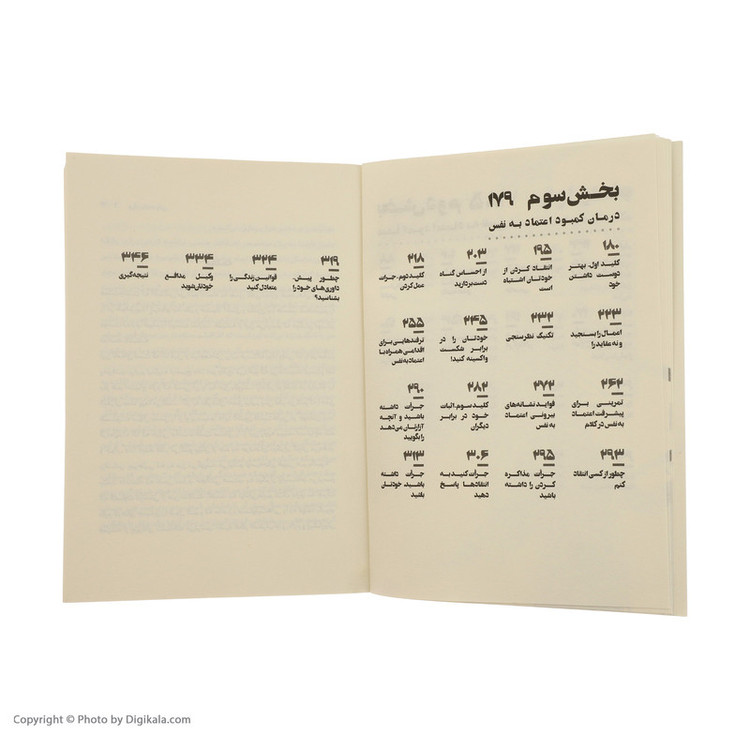 بخش سوم ۱۷۹
درمان کمبود اعتماد به نفس
۱۸۰
کلید اول. بهتر
دوست داشتن
خود
۱۹۵
انتقاد کردن از
خودتان اشتباه
است
۲۰۳
از احساس گناه
دست بردارید
۲۱۸
کلید دوم. جرات
عمل کردن
۲۲۳
اعمال را بسنجید
و نه عقاید را
۲۳۲
تکنیک نظرسنجی
۲۴۵
خودتان را در
برابر شکست
واکسینه کنید!
۲۵۵
ترفندهایی برای
اقدامی همراه با
اعتماد به نفس
۲۶۲
تمرینی برای
پیشرفت اعتماد
به نفس در کلام
۲۷۲
فواید نشانه‌های
بیرونی اعتماد
به نفس
۲۸۲
کلید سوم. اثبات
خود در برابر
دیگران
۲۹۰
جرات داشته
باشید و آنچه
آزارتان می‌دهد
را بگویید
۲۹۳
چطور از کسی انتقاد
کنم
۲۹۵
جرات مذاکره
کردن را داشته
باشید
۳۰۶
جرات کنید به
انتقادها پاسخ
دهید
۳۱۳
جرات داشته
باشید، خودتان
باشید
۳۱۹
چطور پیش.
داوری‌های خود را
بشناسید؟
۳۲۴
قوانین زندگی را
متعادل کنید
۳۳۴
وکیل مدافع
خودتان شوید
۳۴۶
نتیجه‌گیری
Copyright © Photo by Digikala.com